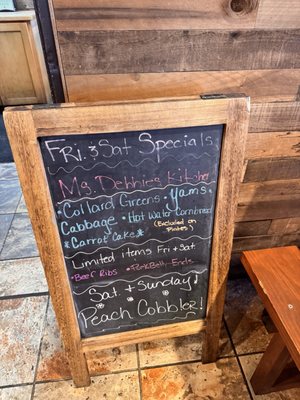 Fri. & Sat Specials
Ms. Debbie's Kitchen
• Collard Greens • Yams •
Cabbage • Hot Water Cornbread
(Included on
Plates)
*Carrot Cake*
Limited items Fri + Sat.
• Beer Ribs • Pork Belly Ends
Sat. + Sunday!
Peach Cobbler!